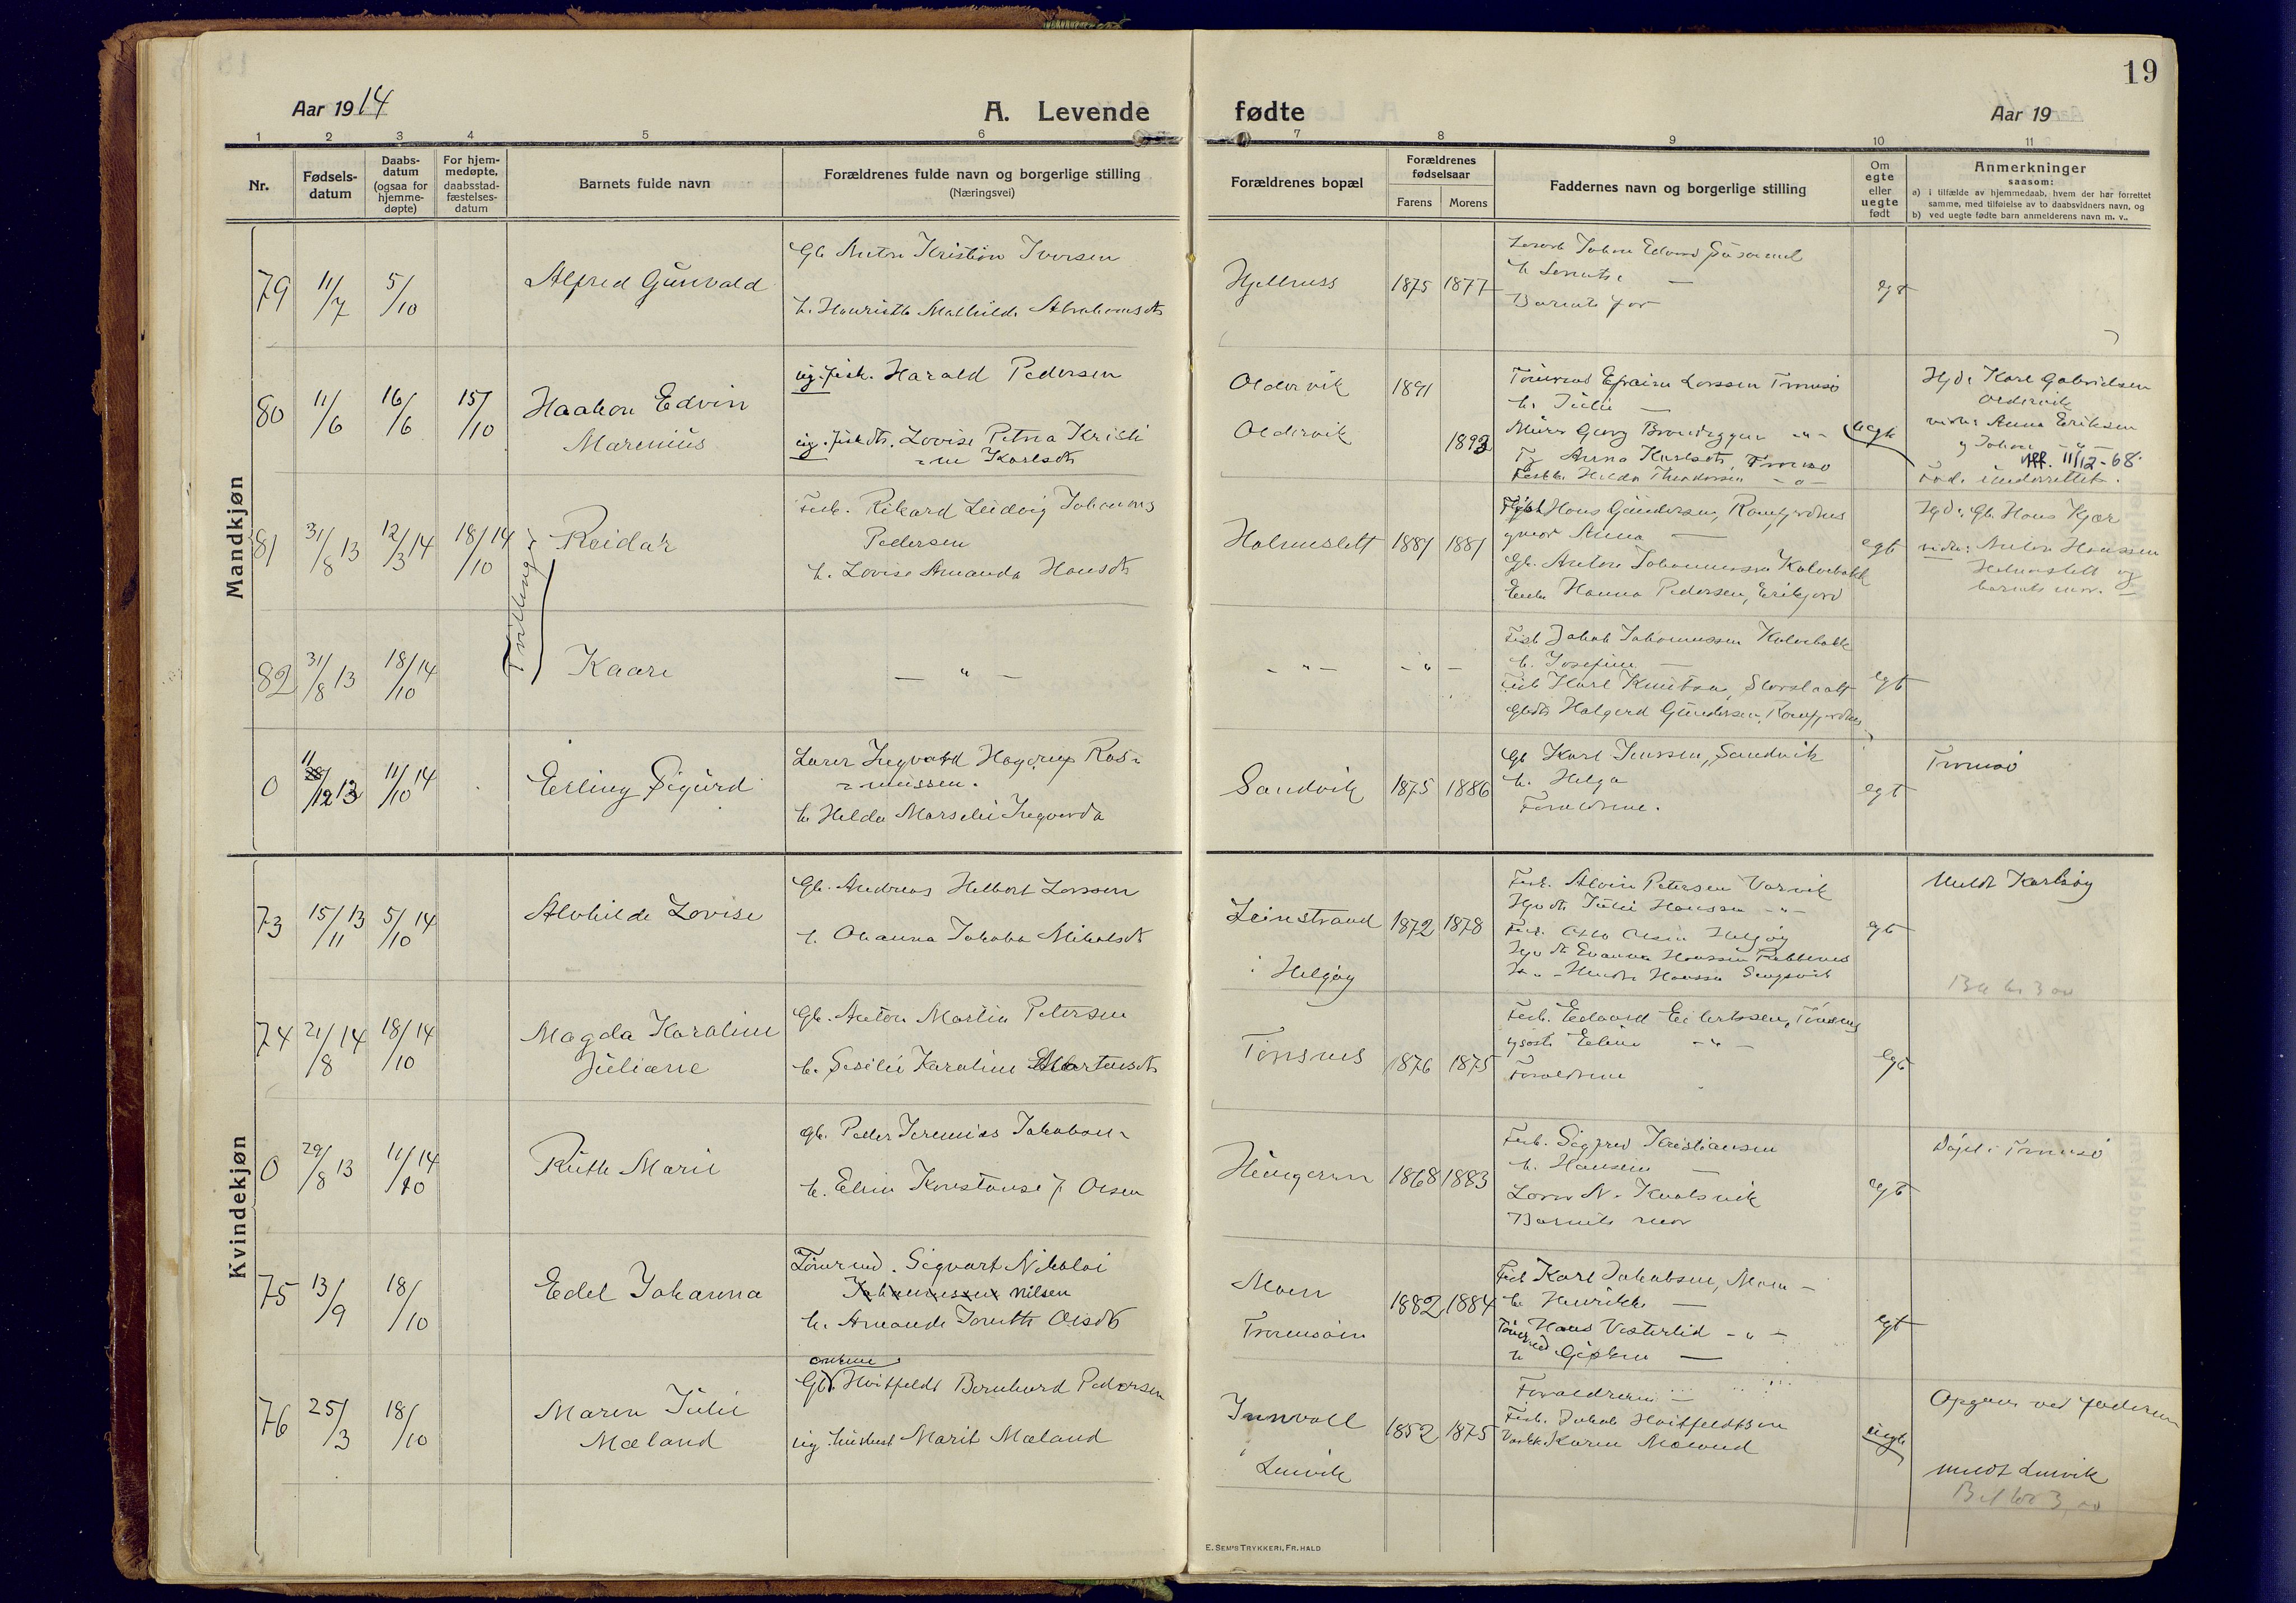 19
Aar 1914
A. Levende
fødte
Aar 19
1 2 3 4 5 6 7 8 9 10 11
Nr.
Fødsels-
datum
Daabs-
datum
(ogsaa for
hjemme-
døpte)
For hjem-
medøpte,
daabsstad-
fæstelses-
datum
Barnets fulde navn
Forældrenes fulde navn og borgerlige stilling
(Næringsvei)
Forældrenes bopæl
Forældrenes
fødselsaar
Farens Morens
Faddernes navn og borgerlige stilling
Om
egte
eller
uegte
født
Anmerkninger
saasom:
a) i tilfælde av hjemmedaab, hvem der har forrettet
samme, med tilføielse av to daabsvidners navn, og
b) ved uegte fødte barn anmelderens navn m. v..
Mandkjøn
79 11/7 5/10
Alfred Gunvald
Gb Anton Kristian Iversen
h. Henrikke Mathilde Abrahamsdt
Hjellness
1875 1877
Johan Edvard
h.
Barnets far
egt
80 11/6 16/6 15/10
Haakon Edvin
Marenius
ug. fisk. Harald Pedersen
ug. fiskdt. Lovise Petra Kristi
=ne Karlsdt
Oldervik
Oldervik
1891
1893
Tømrmd Efraim Larssen Tromsø
h. Julie —
Murer Georg -"-
Anna Karlsdt, Tromsø
Hilda Theodorsen -"-
uegte
Hjd: Karl Gabrielsen
Oldervik
vidn: Anna Eriksen
og Johan -"-
11/12-68.
Fød. underrettet.
81 31/8 13 12/3 14 18/10 14
Tvillinger
Reidar
Fisk. Rikard Ludvig Johannes
Pedersen
h. Lovise Amanda Hansdt
Holmeslett
1881 1881
Hans Gundersen, Ramfjordnes
Anna —
Gb. Anton Johannessen Kalvebakk
Enke Hanna Pedersen, Erikjord
egt
Hjd: Gb. Hans Kjær
vidn: Anton Hanssen
Holmeslett og
barnets mor.
82 31/8 13 18/10 14
Kaare
— " —
- " -
- " -
Fisk Jakob Johannessen Kalvebakk
h. Josefine —
Fisk Karl Knutsen, Storslaatt
Gbdt Halgerd Gundersen, Ramfjordnes
egt
0 11/12 13 11/10 14
Erling Sigurd
Lærer Ingvald Hagerup Ras=
=mussen.
h. Hilda Marselie Ingvarda
Sandvik
1875 1886
Gb Karl Jenssen, Sandvik
h. Helga
Forældrene.
egt
Tromsø
Kvindekjøn
73 15/11 13 5/10 14
Alvhilde Lovise
Gb. Andreas Helbert Larssen
h. Ohanna Jakoba Mikalsdt
Leinstrand
i Helgøy
1872 1878
Fisk. Alvin Petersen Varvik
Julie Hanssen -"-
Fisk. Otto Olsen Helgøy
Evanna Hanssen
Hanssen
egt
Meldt Karlsøy
74 21/8 14 18/10 14
Magda Karoline
Juliane
Gb. Anton Martin Petersen
h. Sesilie Karoline Albertensdt
Tønsnes
1876 1875
Fisk. Edvard Eilertssen, Tønsnes
Eline -"-
Forældrene
egt
0 29/8 13 11/10 14
Ruth Marie
Gb. Peder Jeremias Jakobsen
h. Elise Konstanse f. Olsen
Hungeren
1868 1883
Fisk. Sigfred Kristiansen
h. Hansen —
Lærer N. Kvalsvik
Barnets mor
egt
Døpt i Tromsø
75 13/9 18/10
Edel Johanna
Tømrmd. Sigvart Nikolai
Johannessen Nilsen
h. Amanda Olsdt
Moen
Tromsøen
1882 1884
Fisk Karl Jakobsen, Moen -
h. Henrikke —
Tømrmd Hans Vesterlid - " -
h —
egt
76 25/3 18/10
Maren Julie
Mæland
enkem
Gb. Hvitfeldt Bernhard Pedersen
ug. Marit Mæland
Innvoll
i Lenvik
1852 1875
Forældrene
Fisk. Jakob Hvitfeldtsen
Karen Mæland
uegte
Opgave ved faderen
meldt Lenvik
E. SEM'S TRYKKERI, FR. HALD